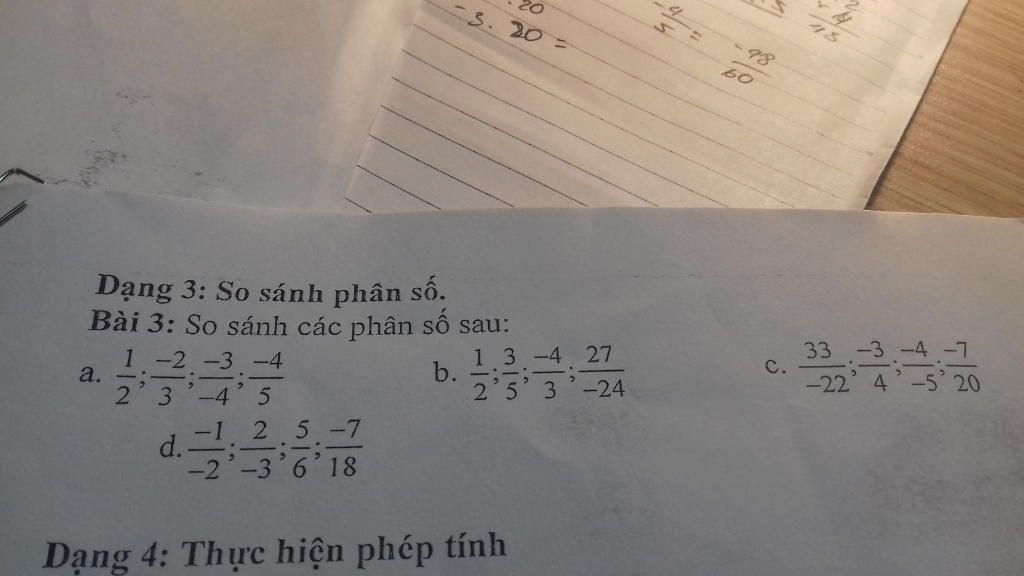 -3. 20 =
-4/5 = -48/60
Dạng 3: So sánh phân số.
Bài 3: So sánh các phân số sau:
a. 1/2; -2/3; -3/-4; -4/5 b. 1/2; 3/5; -4/3; 27/-24 c. 33/-22; -3/4; -4/-5; -7/20
d. -1/-2; 2/-3; 5/6; -7/18
Dạng 4: Thực hiện phép tính